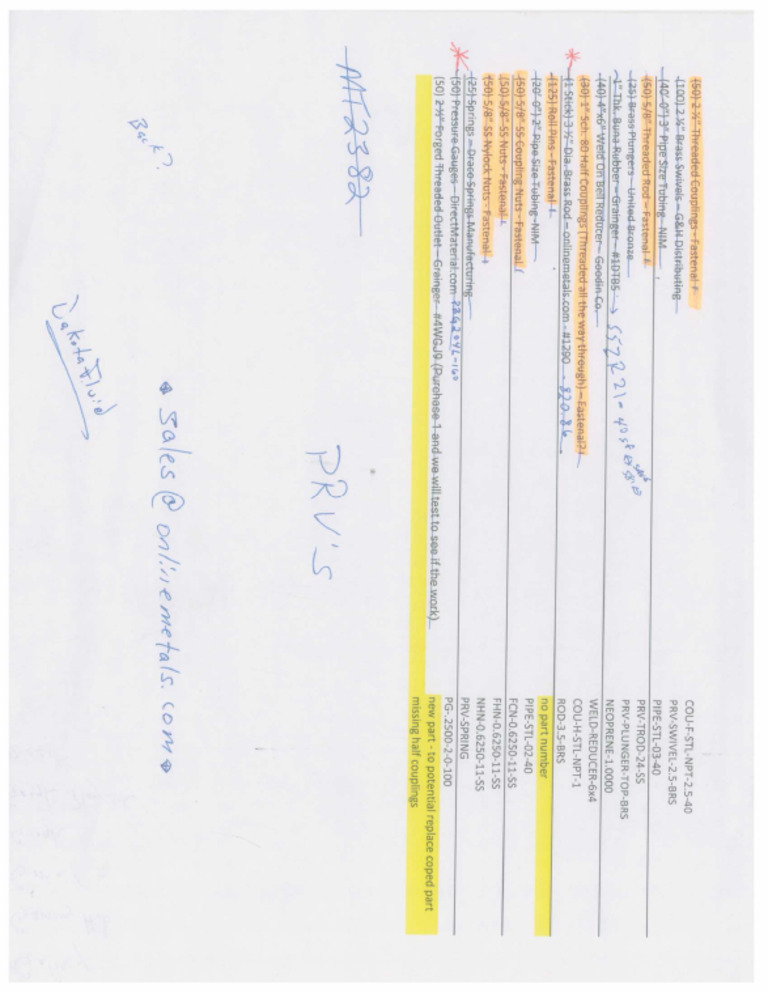 (50) 2 ½" Threaded Couplings - Fastenal COU-F-STL-NPT-2.5-40
(100) 2 ½" Brass Swivels – G&H Distributing PRV-SWIVEL-2.5-BRS
(40'-0") 3" Pipe Size Tubing–NIM PIPE-STL-03-40
(50) 5/8" Threaded Rod – Fastenal PRV-TROD-24-SS
(25) Brass Plungers – United Bronze PRV-PLUNGER-TOP-BRS
1" Thk. Buna Rubber – Grainger - #1DTB5 NEOPRENE-1.0000
(40) 4"x6" Weld On Bell Reducer – Goodin Co. WELD-REDUCER-6x4
(30) 1" Sch. 80 Half Couplings (Threaded all the way through) – Fastenal? COU-H-STL-NPT-1
(1 Stick) 3 ½" Dia. Brass Rod – onlinemetals.com - #1290 - 820.86 ROD-3.5-BRS
(125) Roll Pins - Fastenal no part number
(20'-0") 2" Pipe Size Tubing–NIM PIPE-STL-02-40
(50) 5/8" SS Coupling Nuts - Fastenal FCN-0.6250-11-SS
(50) 5/8" SS Nuts - Fastenal FHN-0.6250-11-SS
(50) 5/8" SS Nylock Nuts - Fastenal NHN-0.6250-11-SS
(25) Springs – Draco Springs Manufacturing PRV-SPRING
(50) Pressure Gauges – DirectMaterial.com PG-.2500-2-0-100
(50) 2 ½" Forged Threaded Outlet – Grainger - #4WGJ9 (Purchase 1 and we will test to see if the work) new part - to potential replace coped part
missing half couplings
MT2382
PRV'S
Back?
• sales@onlinemetals.com •
Dakota Fluid